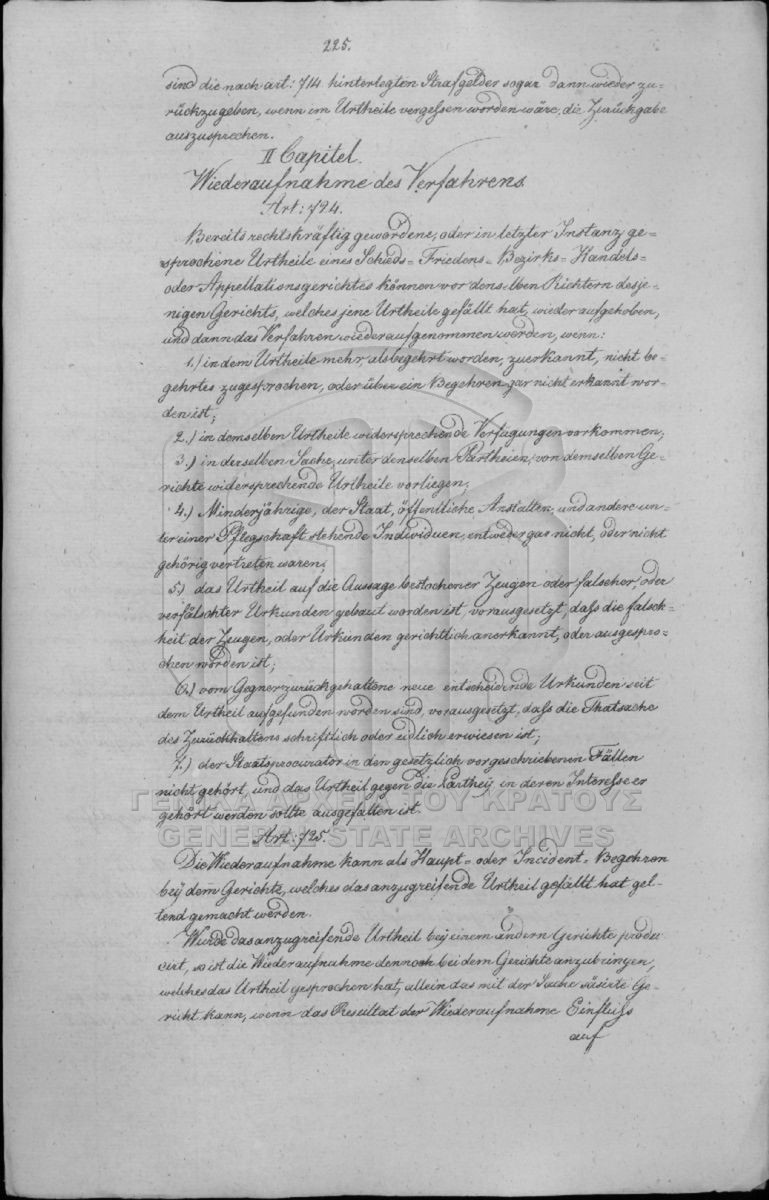 225.
sind die nach art: 714 hinterlegten Strafgelder sogar dann wieder zu-
rückzugeben, wenn im Urtheile vergessen worden wäre, die Zurückgabe
auszusprechen.
II Capitel.
Wiederaufnahme des Verfahrens
Art: 724.
Bereits rechtskräftig gewordene, oder in letzter Instanz ge=
sprochene Urtheile eines Schieds= Friedens= Bezirks= Handels=
oder Appellationsgerichtes können vor denselben Richtern desje=
nigen Gerichts, welches jene Urtheile gefällt hat, wieder aufgehoben,
und dann das Verfahren wiederaufgenommen werden, wenn:
1.) in dem Urtheile mehr, als begehrt worden, zuerkannt, nicht be=
gehrtes zugesprochen, oder über ein Begehren gar nicht erkannt wor-
den ist;
2.) in demselben Urtheile widersprechende Verfügungen vorkommen;
3.) in derselben Sache, unter denselben Partheien, von demselben Ge-
richte widersprechende Urtheile vorliegen;
4.) Minderjährige, der Staat, öffentliche Anstalten, und andere un-
ter einer Pflegschaft stehende Individuen, entweder gar nicht, oder nicht
gehörig vertreten waren;
5.) das Urtheil auf die Aussage bestochener Zeugen oder falscher, oder
verfälschter Urkunden gebaut worden ist, vorausgesetzt, daß die falsch-
heit der Zeugen, oder Urkunden gerichtlich anerkannt, oder ausgespro-
chen worden ist;
6.) vom Gegner zurückgehaltene neue entscheidende Urkunden seit
dem Urtheil aufgefunden worden sind, vorausgesetzt, daß die Thatsache
des Zurückhaltens schriftlich oder eidlich erwiesen ist;
7.) der Staatsprocurator in den gesetzlich vorgeschriebenen Fällen
nicht gehört, und das Urtheil gegen die Parthey, in deren Interesse er
ΓΕΝΙΚΑ ΑΡΧΕΙΑ ΤΟΥ ΚΡΑΤΟΥΣ
gehört werden sollte ausgefallen ist.
GENERAL STATE ARCHIVES
Art: 725.
Die Wiederaufnahme kann als Haupt= oder Incident= Begehren
beÿ dem Gerichte, welches das anzugreifende Urtheil gefällt hat gel-
tend gemacht werden.
Wurde das anzugreifende Urtheil beÿ einem andern Gerichte produ
cirt, so ist die Wiederaufnahme dennoch bei dem Gerichte anzubringen,
welches das Urtheil gesprochen hat, allein das mit der Sache säsirte Ge-
richt kann, wenn das Resultat der Wiederaufnahme Einfluß
auf